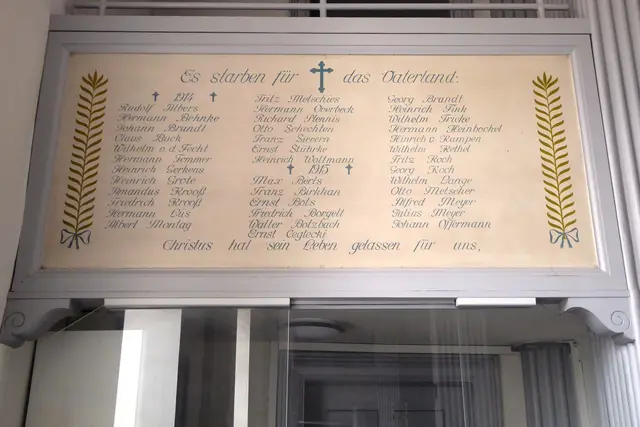 Es starben für das Vaterland:
1914
Rudolf Albers
Hermann Behnke
Johann Brandt
Claus Buck
Wilhelm v. d. Fecht
Hermann Femmer
Heinrich Gerkens
Heinrich Grote
Amandus Krooß
Friedrich Krooß
Hermann
Albert Montag
Fritz Metschies
Hermann Overbeck
Richard Plennis
Otto Schechten
Franz Sievern
Ernst Stührke
Heinrich Woltmann
1915
Max Berls
Franz Birkhan
Ernst Bols
Friedrich Borgelt
Walter Botzbach
Ernst Ceglecki
Georg Brandt
Heinrich Fink
Wilhelm Fricke
Hermann Heinbockel
Hinrich v. Kampen
Wilhelm Kethel
Fritz Koch
Georg Koch
Wilhelm Lange
Otto Metscher
Alfred Meyer
Julius Meyer
Johann Offermann
Christus hat sein Leben gelassen für uns,